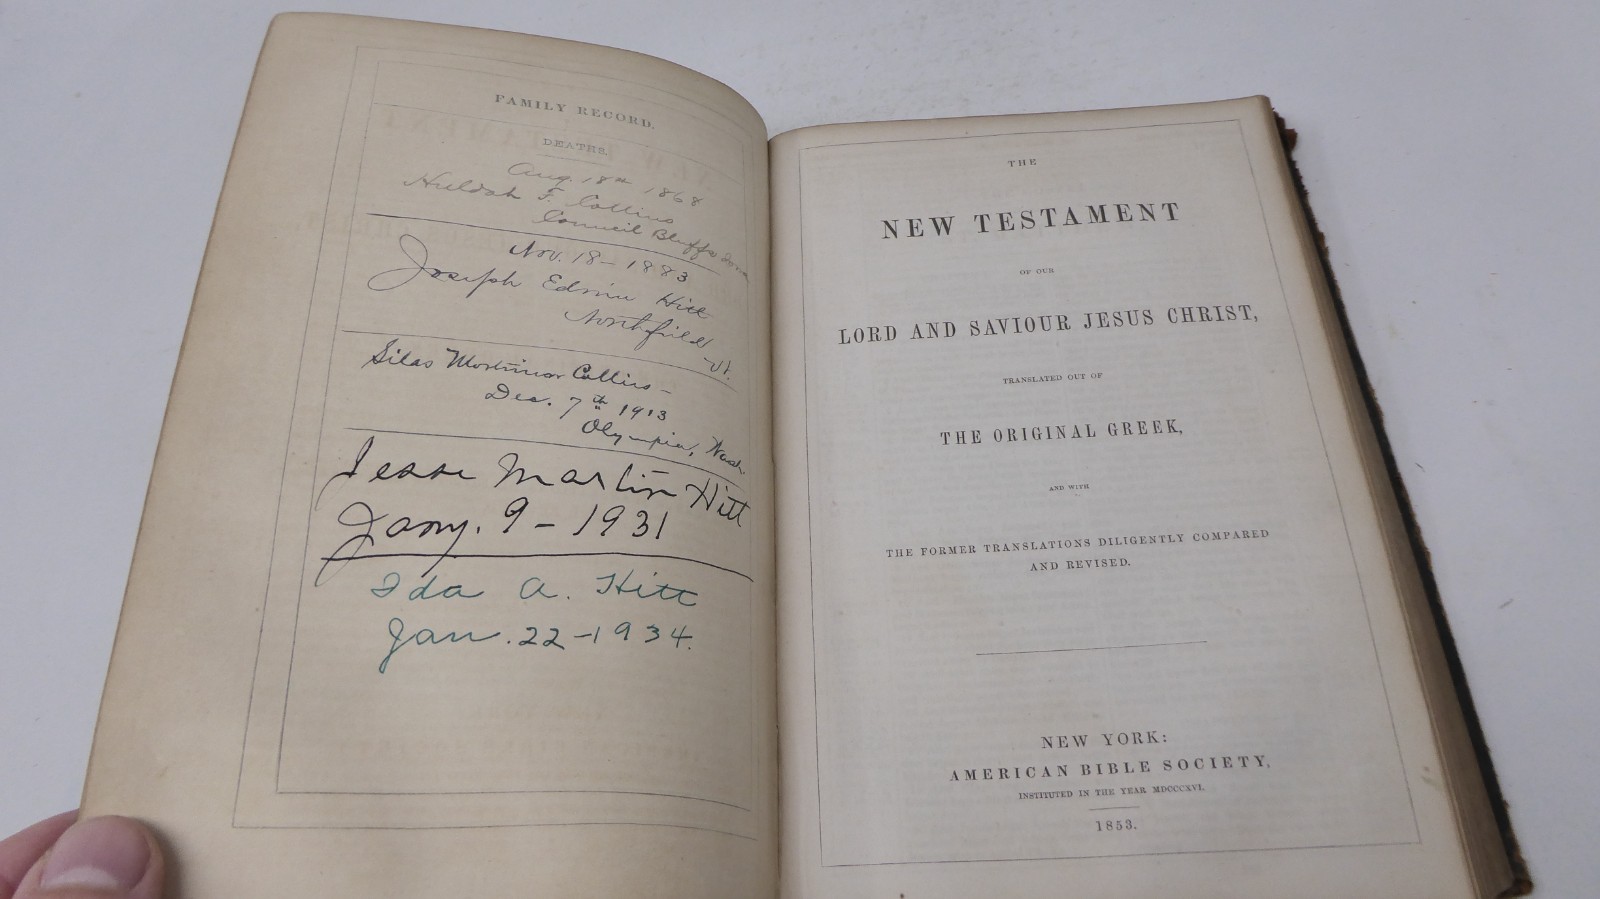 FAMILY RECORD.
DEATHS.
Aug. 18th 1868
Huldah F. Collins
Council Bluffs Iowa
Nov. 18 - 1883
Joseph Edwin Hitt
Northfield Vt.
Silas Mortimor Collins -
Dec. 7th 1913
Olympia, Wash.
Jesse Martin Hitt
Jany. 9 - 1931
Ida A. Hitt
Jan. 22 - 1934.
THE
NEW TESTAMENT
OF OUR
LORD AND SAVIOUR JESUS CHRIST,
TRANSLATED OUT OF
THE ORIGINAL GREEK,
AND WITH
THE FORMER TRANSLATIONS DILIGENTLY COMPARED
AND REVISED.
NEW YORK:
AMERICAN BIBLE SOCIETY,
INSTITUTED IN THE YEAR MDCCCXVI.
1853.